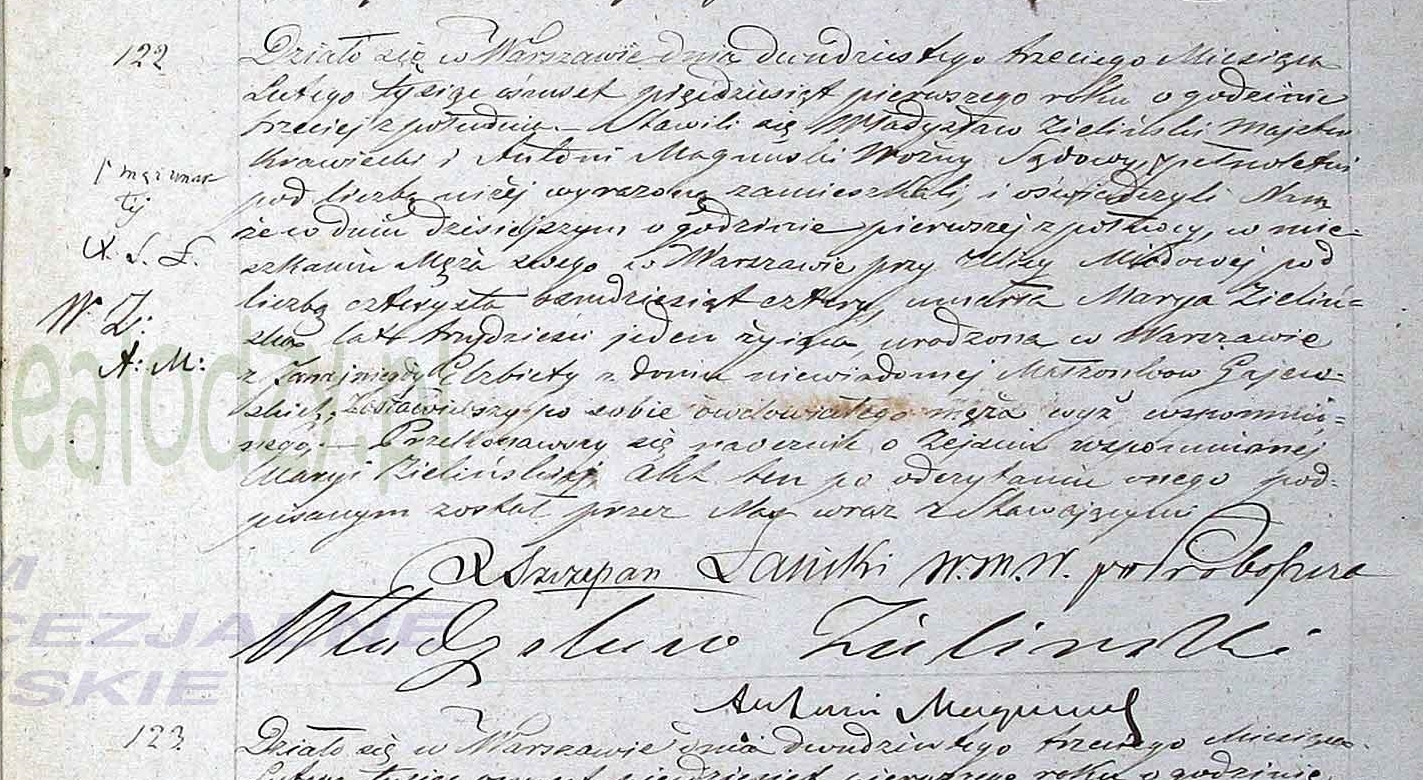 122
Działo się w Warszawie dnia dwudziestego trzeciego Miesiąca
Lutego tysiąc ośmset pięćdziesiąt pierwszego roku o godzinie
trzeciej z południa. – Stawili się Władysław Zieliński Majster
Krawiecki i Antoni Magnuski Woźny Sądowy, pełnoletni
pod liczbą niżej wyrażoną zamieszkali, i oświadczyli Nam
że w dniu dzisiejszym o godzinie pierwszej z północy, w mie-
szkaniu Męża swego w Warszawie przy Ulicy Miodowej pod
liczbą czterysta ośmdziesiąt cztery, umarła Marya Zieliń=
ska lat trzydzieści jeden życia, urodzona w Warszawie
z Elżbiety z domu niewiadomej Małżonków Gajew-
skich, Zostawiwszy po sobie owdowiałego męża wyż wspomnio=
nego. – Przekonawszy się naocznie o Zejściu wspomnianej
Maryi Zielińskiej, Akt ten po odczytaniu onego pod-
pisanym został przez Nas wraz z Stawającymi
X. S. Ł.
W. Z:
A: M:
X Szczepan W.M.W.
Władysław Zielinski
Antoni Magnuski
123
Działo się w Warszawie dnia dwudziestego trzeciego Miesiąca
Lutego tysiąc ośmset pięćdziesiąt pierwszego roku o godzinie
ealodzy.pl
M
CEZJALNE
SKIE